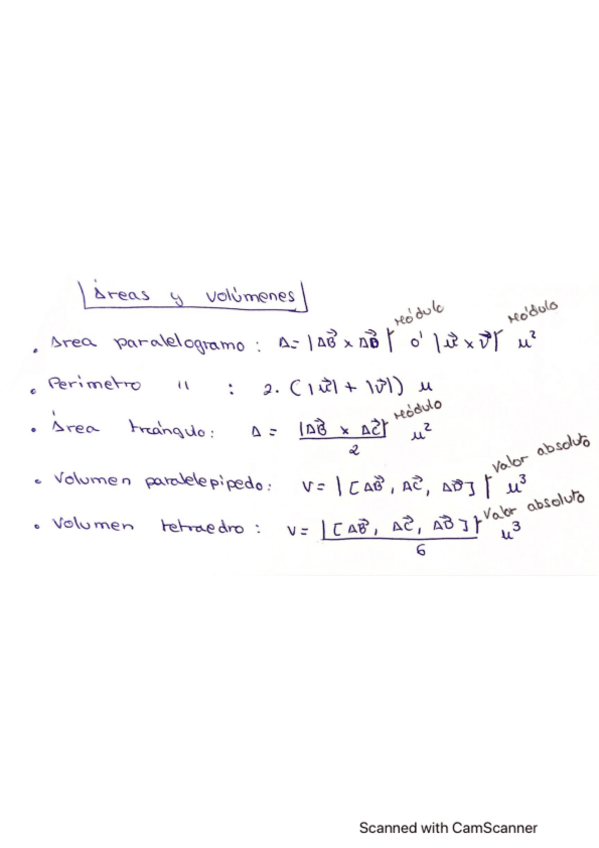 Áreas y volúmenes
• Area paralelogramo : A = |AB⃗ x AD⃗| módulo o' |u⃗ x v⃗| módulo u²
• Perimetro " : 2. (|u⃗| + |v⃗|) u
• Área triángulo: A = |AB⃗ x AC⃗| módulo / 2 u²
• Volumen paralelepipedo: V = |[AB⃗, AC⃗, AD⃗]| valor absoluto u³
• Volumen tetraedro : V = |[AB⃗, AC⃗, AD⃗]| valor absoluto / 6 u³
Scanned with CamScanner